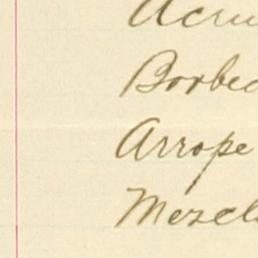 Acru
Borbed
Arrope
Mezcl